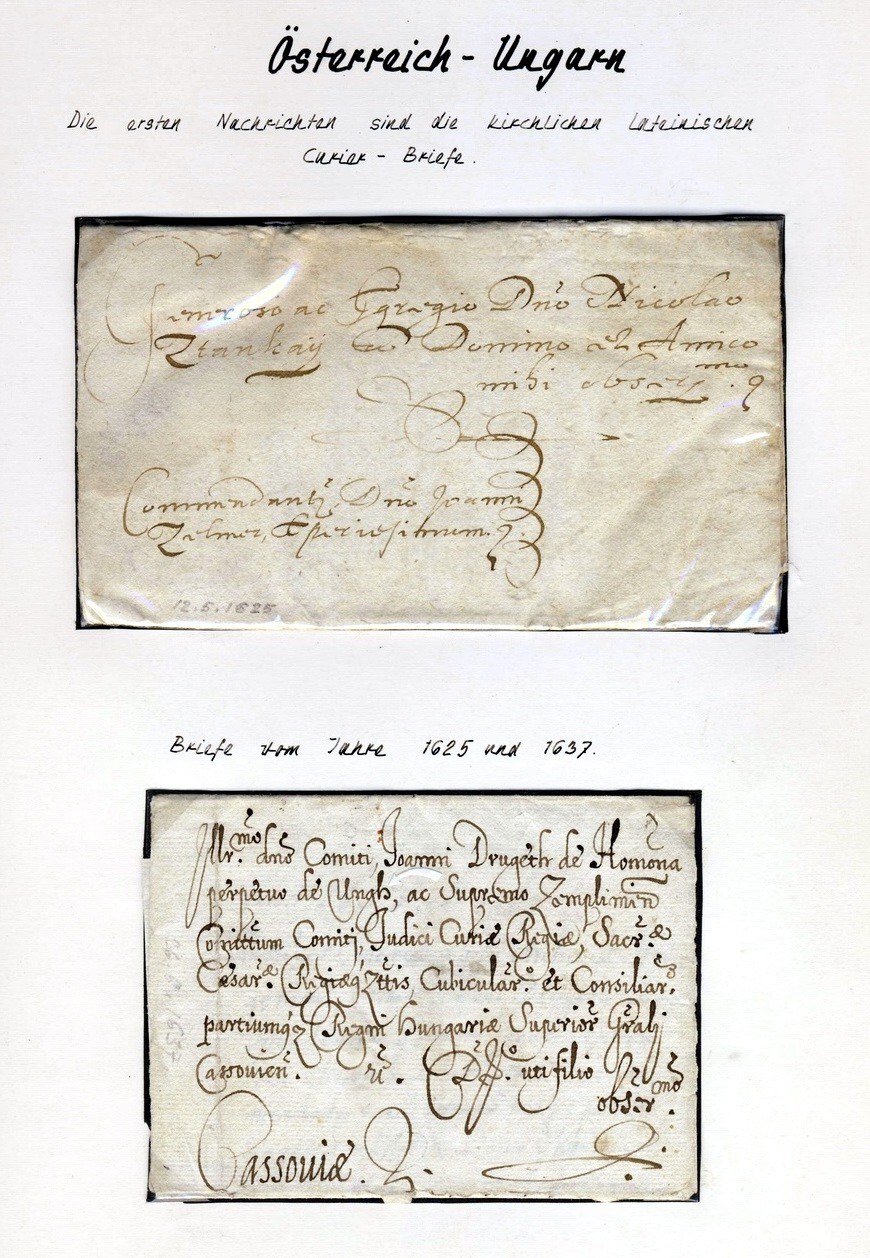 Österreich - Ungarn
Die ersten Nachrichten sind die kirchlichen lateinischen
Curier - Briefe.
Generoso ac Egregio Dno Nicolao
Ztankaij Domino et Amico
mihi obser mo
Commendantz Dno Joanni
Zelmer, Eperiesinum.
12.5.1625
Briefe vom Jahre 1625 und 1637.
Illr.mo dno Comiti, Joanni Drugeth de Homona
perpetuo de Ungh, ac Supremo Zemplinien
Comittum Comiti, Judici Curiæ Regiæ, Sacr.æ
Cesar.æ Regiæq; Cubicular.o et Consiliar.
partiumq; Regni Hungariæ Superior Grali
Cassovien. uti filio
obser mo.
Cassoviæ.